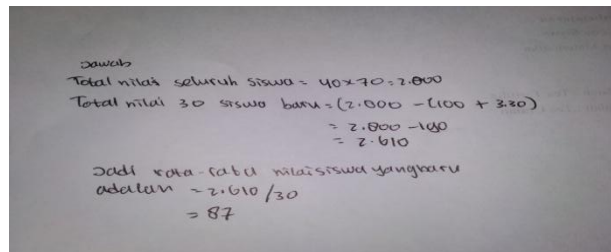 Jawab
Total nilai seluruh siswa = 40 x 70 = 2.800
Total nilai 30 siswa baru = (2.800 - (100 + 3.30)
= 2.800 - 190
= 2.610
Jadi rata-rata nilai siswa yang baru
adalah = 2.610/30
= 87